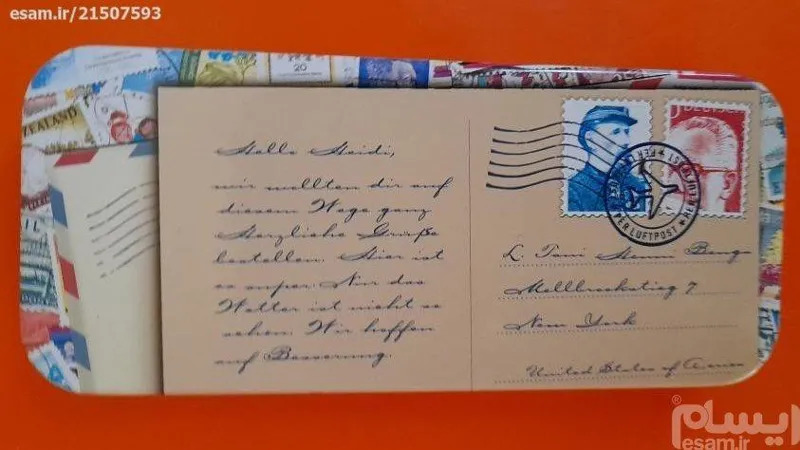 esam.ir/21507593
ZEALAND
20
Hallo Heidi,
wir wollten dir auf
diesem Wege ganz
Herzliche Grüße
bestellen. Hier ist
es super. Nur das
Wetter ist nicht so
sehen. Wir hoffen
auf Besserung.
DEUTSCHE
PER LUFTPOST
L. Toni
Mellbrookstieg 7
New York
United States of America
ایسام
esam.ir